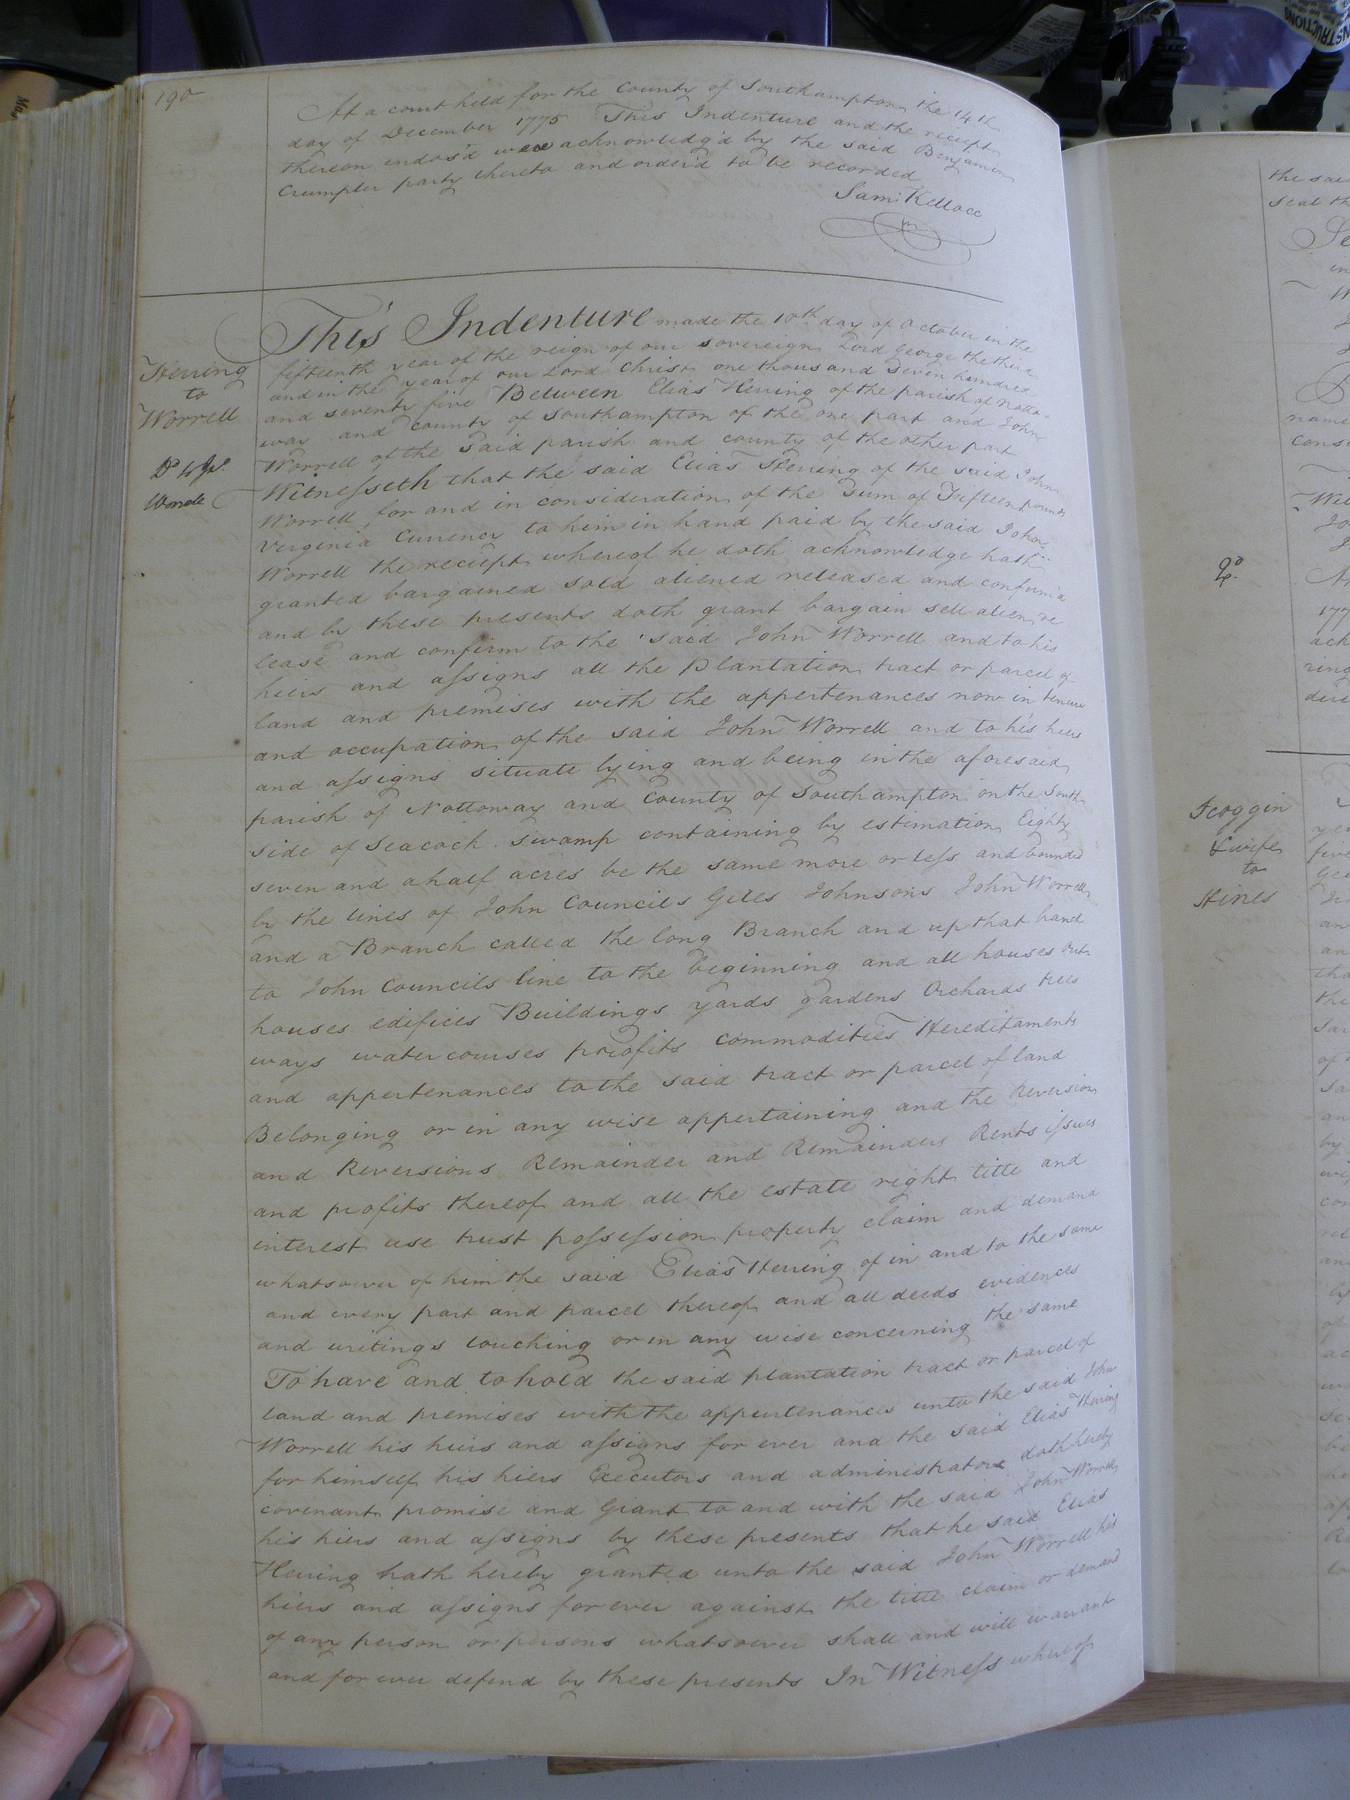 190
At a court held for the County of Southampton the 14th
day of December 1775 This Indenture and the receipt
thereon endos'd were acknowledg'd by the said Benjamin
Crumpler party thereto and order'd to be recorded
Sam: Kello cc
This Indenture made the 10th day of October in the
fifteenth year of the reign of our sovereign Lord George the third
and in the year of our Lord Christ one thousand seven hundred
and seventy five Between Elias Herring of the parish of Notto-
way and County of Southampton of the one part and John
Worrell of the said parish and county of the other part
Witnesseth that the said Elias Herring of the said John
Worrell for and in consideration of the Sum of Fifteen pounds
Verginia Currency to him in hand paid by the said John
Worrell the reciept whereof he doth acknowledge hath
granted bargained sold aliened released and confirm'd
and by these presents doth grant bargain sell alien re
lease and confirm to the said John Worrell and to his
hiers and assigns all the plantation tract or parcel of
land and premises with the appertenances now in tenure
and occupation of the said John Worrell and to his hiers
and assigns situate lying and being in the aforesaid
parish of Nottoway and County of Southampton on the South
side of Seacock swamp containing by estimation Eighty
seven and a half acres be the same more or less and bounded
by the lines of John Councils Giles Johnsons John Worrell
and a Branch called the long Branch and up that hand
to John Councils line to the beginning and all houses out
houses edifices Buildings yards gardens Orchards trees
ways watercourses proofits commodities Hereditaments
and appertenances to the said tract or parcel of land
Belonging or in any wise appertaining and the Reversion
and Reversions Remainder and Remainders Rents issues
and profits thereof and all the estate right title and
interest use trust possession property claim and demand
whatsoever of him the said Elias Herring of in and to the same
and every part and parcel thereof and all deeds evidences
and writings touching or in any wise concerning the same
To have and to hold the said plantation tract or parcel of
land and premises with the appurtenances unto the said John
Worrell his hiers and assigns for ever and the said Elias Herring
for himself his hiers Executors and administrators doth hereby
covenant promise and Grant to and with the said John Worrell
his hiers and assigns by these presents that he said Elias
Herring hath hereby granted unto the said John Worrell his
hiers and assigns for ever against the title claim or demand
of any person or persons whatsoever shall and will warrant
and for ever defend by these presents In Witness whereof
Herring
to
Worrell
the said
seal th
name
cons
Wit
177
ack
Scoggin
& wife
to
Hines